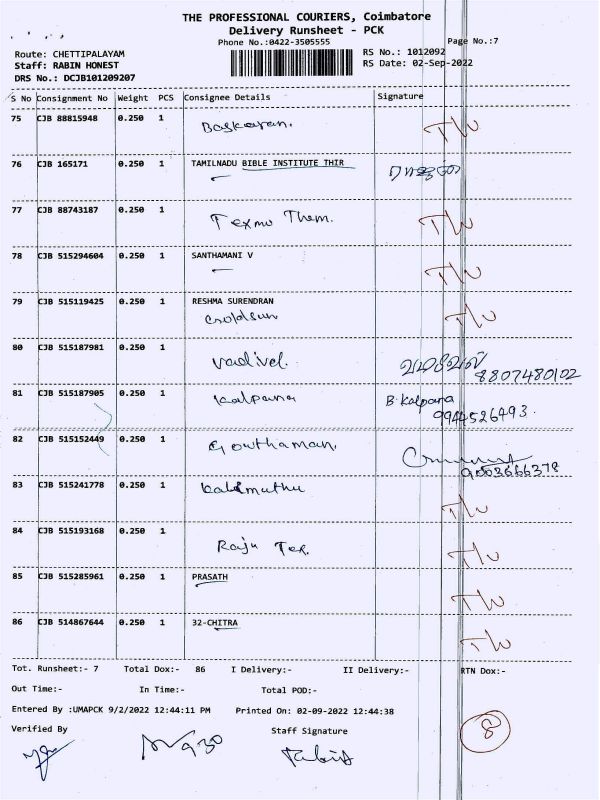 THE PROFESSIONAL COURIERS, Coimbatore
Delivery Runsheet - PCK
Phone No.:0422-3505555
Page No.:7
Route: CHETTIPALAYAM
RS No.: 1012092
Staff: RABIN HONEST
RS Date: 02-Sep-2022
DRS No.: DCJB101209207
S No Consignment No Weight PCS Consignee Details Signature
75 CJB 88815948 0.250 1 Baskaran. T/W
76 CJB 165171 0.250 1 TAMILNADU BIBLE INSTITUTE THIR
77 CJB 88743187 0.250 1 Texmo Them. T/W
78 CJB 515294604 0.250 1 SANTHAMANI V T/W
79 CJB 515119425 0.250 1 RESHMA SURENDRAN
T/W
80 CJB 515187981 0.250 1 Vadivel. வடிவேல்
8807480102
81 CJB 515187905 0.250 1 Kalpana B. Kalpana
9944526493.
82 CJB 515152449 0.250 1 Gowthaman.
9003666378
83 CJB 515241778 0.250 1 Kalimuthu T/W
84 CJB 515193168 0.250 1 Raju Tex. T/W
85 CJB 515285961 0.250 1 PRASATH T/W
86 CJB 514867644 0.250 1 32-CHITRA T/W
Tot. Runsheet:- 7 Total Dox:- 86 I Delivery:- II Delivery:- RTN Dox:-
Out Time:- In Time:- Total POD:-
Entered By :UMAPCK 9/2/2022 12:44:11 PM Printed On: 02-09-2022 12:44:38
Verified By Staff Signature
8